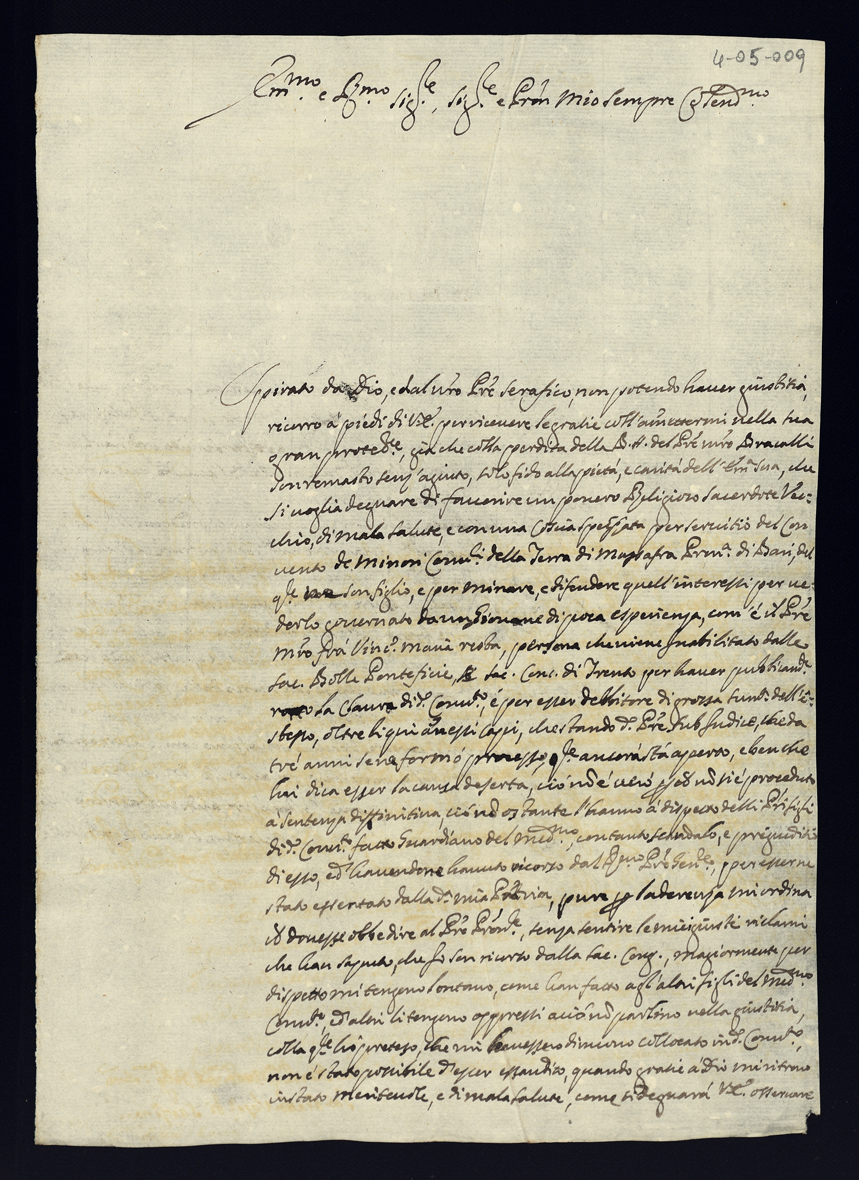 4-05-009
Em.mo e R.mo Sig.re, Sig.re e Pron mio sempre Col.mo
Ispirato da Dio, e dal ñro Pre Serafico, non potendo haver giustitia,
ricorro à piedi di V.E. per ricevere le gratie coll'ammettermi nella sua
gran protet.ne, già che colla perdita della B. A. del Pre mro Bracalli
son remasto senz'agiuto, solo fido alla pietà, e carità dell'Em. sua, che
si voglia degnare di favorire un povero Religioso sacerdote Vec=
chio, di mala salute, e con una Coscia spezzata per servitio del Con
vento de Minori Conv.li della Terra di Massafra Prov.a di Bari, del
q.le son figlio, e per mirare, e difendere quell'interessi per ve=
derlo governato da un Giovane di poca esperienza, com'è il Pre
Mro frà Vinc.o maria resta, persona che viene inabilitato dalle
Sac. Bolle Pontificie, e Sac. Conc. di Trento per haver
la Clausura di d.o Conv.to, è per esser debbitore di grossa sum.a dell'i=
stesso, oltre li qui annessi Capi, che stando d.o Pre sub Judice, che da
trè anni se ne formò processo, q.le ancora stà aperto, e ben che
lui dica esser la causa deserta, ciò nõ è vero nõ si è proceduto
à sentenza diffinitiva, ciò nõ ostante l'hanno à dispetto delli Pri figli
di d.o Conv.to fatto Guardiano del med.mo, con tanto scandalo, e pregiuditio
di esso, ed havendone havuto ricorso dal R.mo Pre Gen.le, per esserne
stato esentato dalla d.a mia Provincia, pure p la mi ordina
dovesse obbedire al Pre Prov.le, senza sentire le miei giusti riclami
che han saputo, che fò son ricorso dalla Sac. Cong., magiormente per
dispetto mi tengono lontano, come han fatto agl'altri figli del med.mo
Conv.to, ed altri li tengono oppressi acciò nõ parlino nella giustitia,
colla q.le hò preteso, che mi havessero dimeno collocato in d.o Conv.to,
non è stato possibile d'esser essaudito, quando gratie a Dio mi ritrovo
in stato meritevole, e di mala salute, come si degnarà V.E. osservare